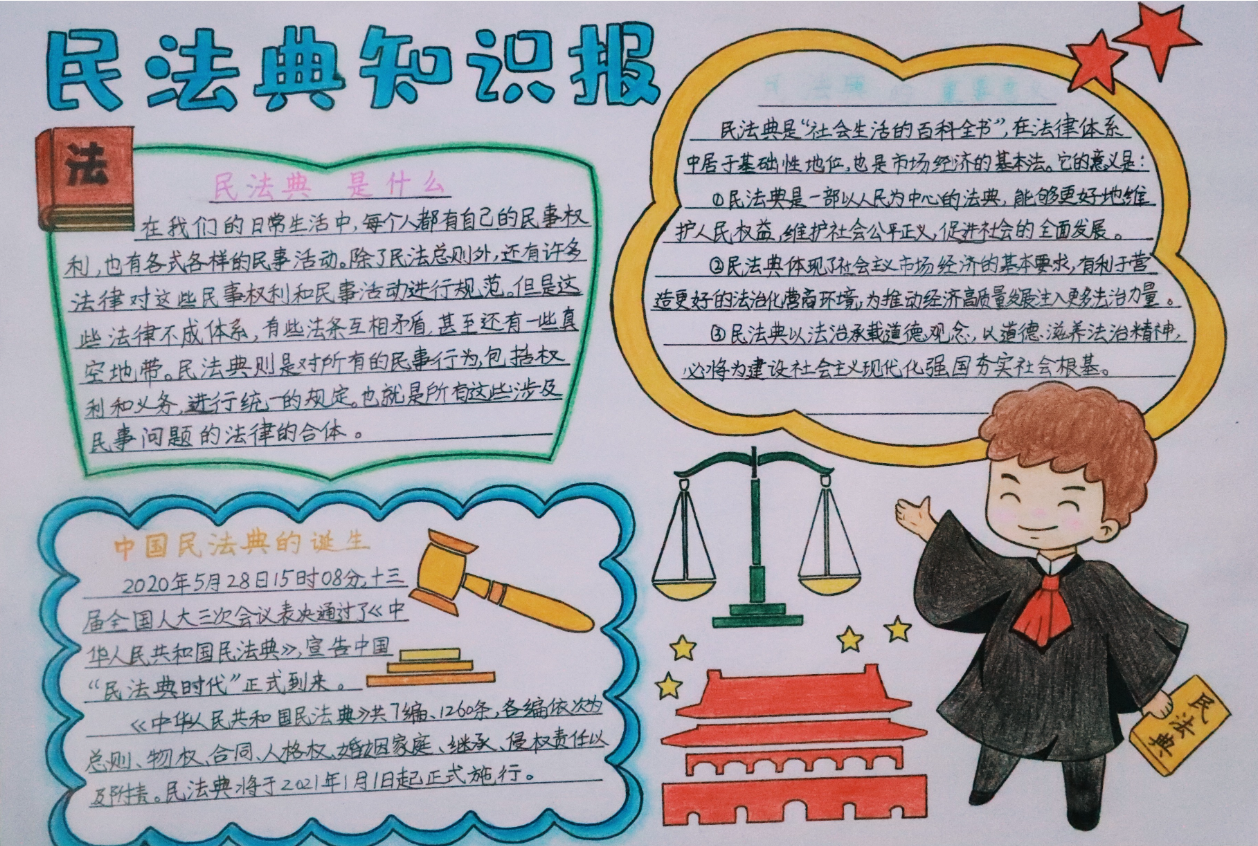 民法典知识报
法
民法典 是什么
在我们的日常生活中,每个人都有自己的民事权
利,也有各式各样的民事活动。除了民法总则外,还有许多
法律对这些民事权利和民事活动进行规范。但是这
些法律不成体系,有些法条互相矛盾,甚至还有一些真
空地带。民法典则是对所有的民事行为,包括权
利和义务,进行统一的规定。也就是所有这些涉及
民事问题的法律的合体。
民法典的重要意义
民法典是“社会生活的百科全书”,在法律体系
中居于基础性地位,也是市场经济的基本法。它的意义是:
①民法典是一部以人民为中心的法典,能够更好地维
护人民权益,维护社会公平正义,促进社会的全面发展。
②民法典体现了社会主义市场经济的基本要求,有利于营
造更好的法治化营商环境,为推动经济高质量发展注入更多法治力量。
③民法典以法治承载道德观念,以道德滋养法治精神,
必将为建设社会主义现代化强国夯实社会根基。
中国民法典的诞生
2020年5月28日15时08分,十三
届全国人大三次会议表决通过了《中
华人民共和国民法典》,宣告中国
“民法典时代”正式到来。
《中华人民共和国民法典》共7编、1260条,各编依次为
总则、物权、合同、人格权、婚姻家庭、继承、侵权责任以
及附则。民法典将于2021年1月1日起正式施行。
民法典